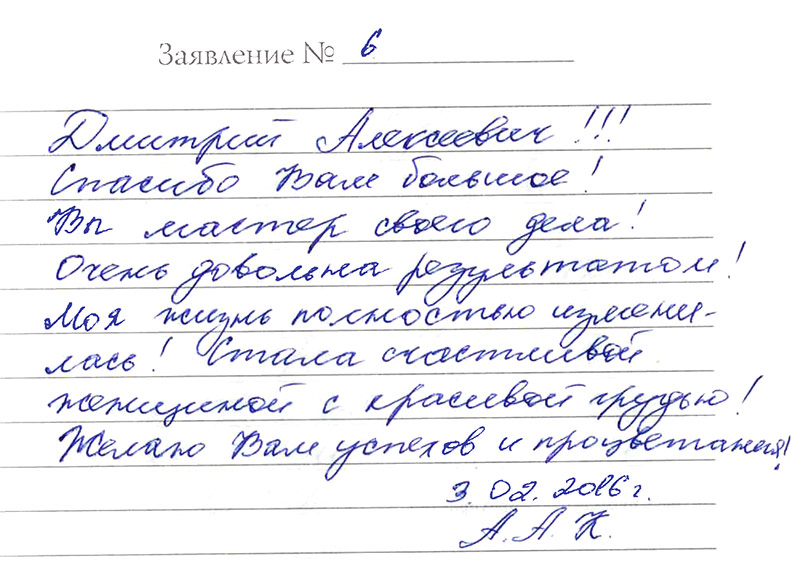 Заявление № 6
Дмитрий Алексеевич!!!
Спасибо Вам большое!
Вы мастер своего дела!
Очень довольна результатом!
Моя жизнь полностью измени-
лась! Стала счастливой
женщиной с красивой грудью!
Желаю Вам успехов и процветания!
3.02.2016г.
А.А.К.